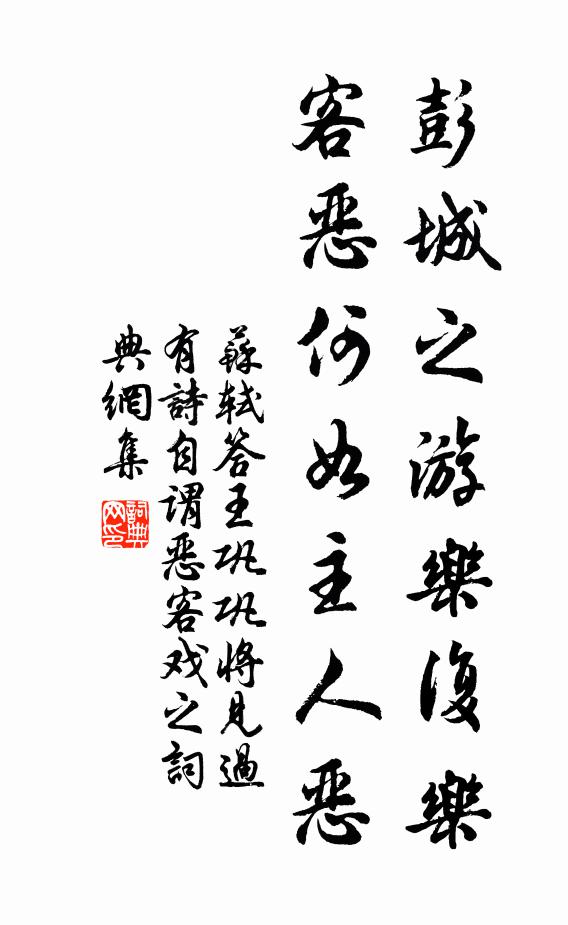 彭城之游樂復樂
客惡何如主人惡
蘇軾答王巩巩將見過
有詩自謂惡客戏之詞
典網集
詞典網印